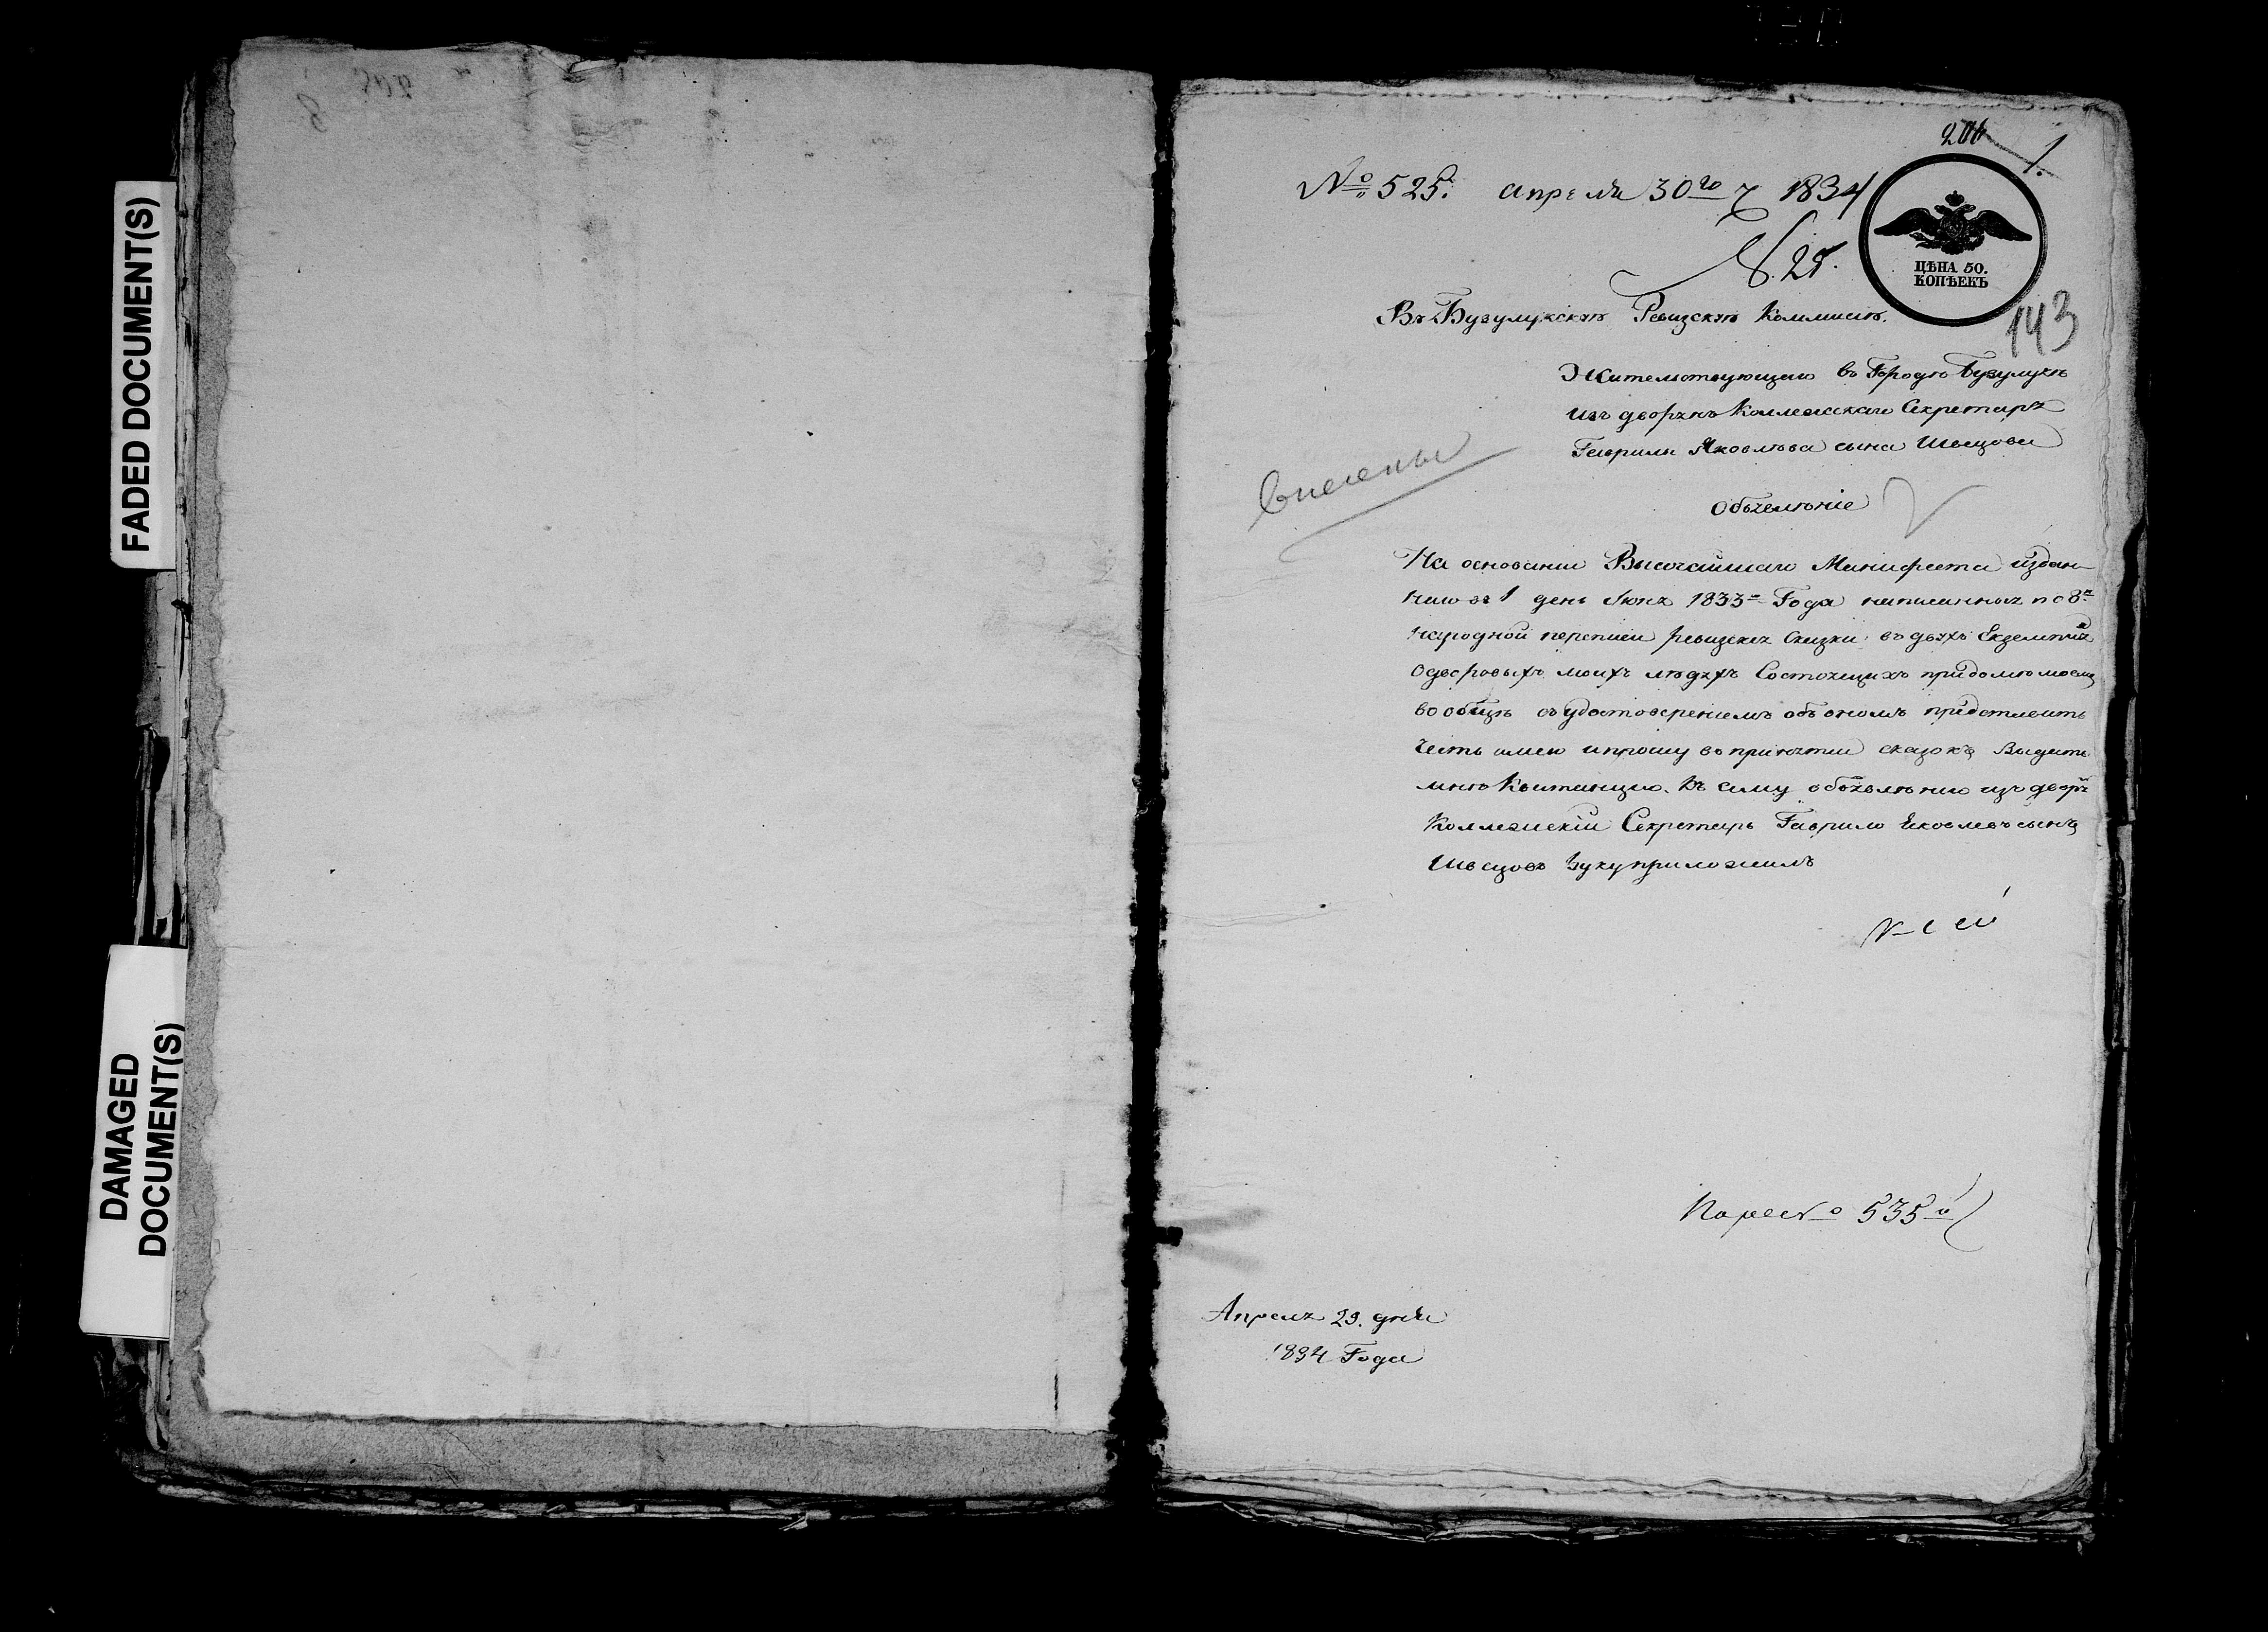 FADED DOCUMENT(S)
DAMAGED
DOCUMENT(S)
206
1.
№ 525. апреля 30го ч 1834
ЦѢНА 50.
КОПѢЕКЪ
143
Въ Бузулукскую Ревизскую Коммисію.
Жительствующаго въ Городѣ Бузулукѣ
изъ дворянъ Коллежскаго Секретаря
Гаврилы Яковлева сына Швецова
внесены
Объявленіе
На основаніи Высочайшаго Манифеста издан-
наго въ 1 день Июня 1833го Года написанныя по 8й
народной переписи ревизскія Сказки въ двухъ Екземпля
о дворовыхъ моихъ людяхъ Состоящихъ при домѣ моемъ
вообще съ удостовереніемъ объ ономъ представить
честь имею и прошу въ принятіи сказокъ выдать
мнѣ Квитанцию. Къ сему объявлению изъ дворя
Коллежскій Секретарь Гаврило Яковлевъ сынъ
Швецовъ руку приложилъ
По рес № 535й
Апреля 29. дня
1834 Года